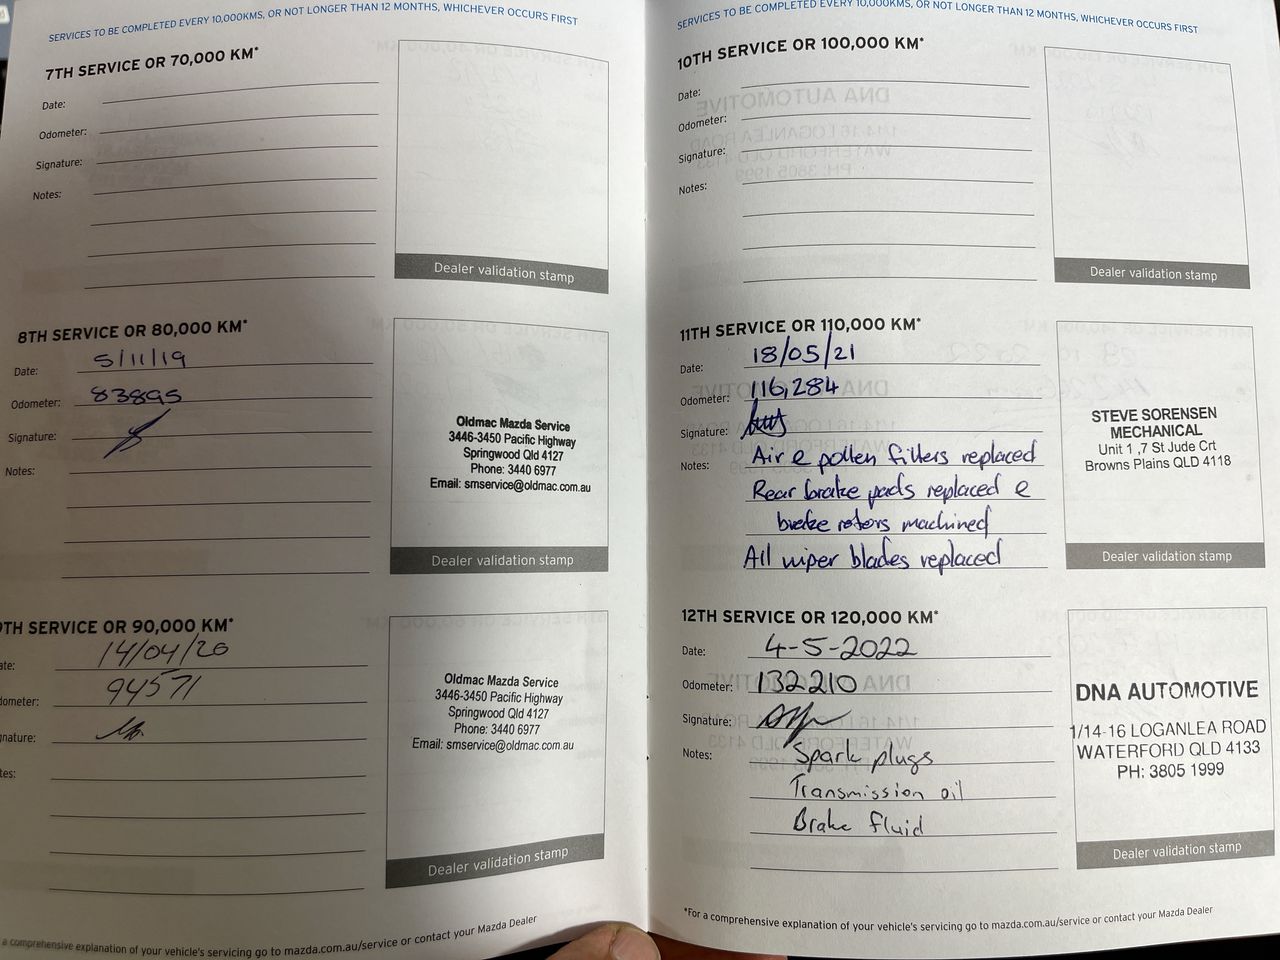 SERVICES TO BE COMPLETED EVERY 10,000KMS, OR NOT LONGER THAN 12 MONTHS, WHICHEVER OCCURS FIRST
7TH SERVICE OR 70,000 KM*
Date:
Odometer:
Signature:
Notes:
Dealer validation stamp
8TH SERVICE OR 80,000 KM*
Date: 5/11/19
Odometer: 83895
Signature:
Notes:
Oldmac Mazda Service
3446-3450 Pacific Highway
Springwood Qld 4127
Phone: 3440 6977
Email: smservice@oldmac.com.au
Dealer validation stamp
9TH SERVICE OR 90,000 KM*
ate: 14/04/20
dometer: 94571
nature:
tes:
Oldmac Mazda Service
3446-3450 Pacific Highway
Springwood Qld 4127
Phone: 3440 6977
Email: smservice@oldmac.com.au
Dealer validation stamp
a comprehensive explanation of your vehicle's servicing go to mazda.com.au/service or contact your Mazda Dealer
SERVICES TO BE COMPLETED EVERY 10,000KMS, OR NOT LONGER THAN 12 MONTHS, WHICHEVER OCCURS FIRST
10TH SERVICE OR 100,000 KM*
Date:
Odometer:
Signature:
Notes:
Dealer validation stamp
11TH SERVICE OR 110,000 KM*
Date: 18/05/21
Odometer: 116,284
Signature:
Notes: Air & pollen filters replaced
Rear brake pads replaced &
brake rotors machined
All wiper blades replaced
STEVE SORENSEN
MECHANICAL
Unit 1 ,7 St Jude Crt
Browns Plains QLD 4118
Dealer validation stamp
12TH SERVICE OR 120,000 KM*
Date: 4-5-2022
Odometer: 132210
Signature:
Notes: Spark plugs
Transmission oil
Brake fluid
DNA AUTOMOTIVE
1/14-16 LOGANLEA ROAD
WATERFORD QLD 4133
PH: 3805 1999
Dealer validation stamp
*For a comprehensive explanation of your vehicle's servicing go to mazda.com.au/service or contact your Mazda Dealer